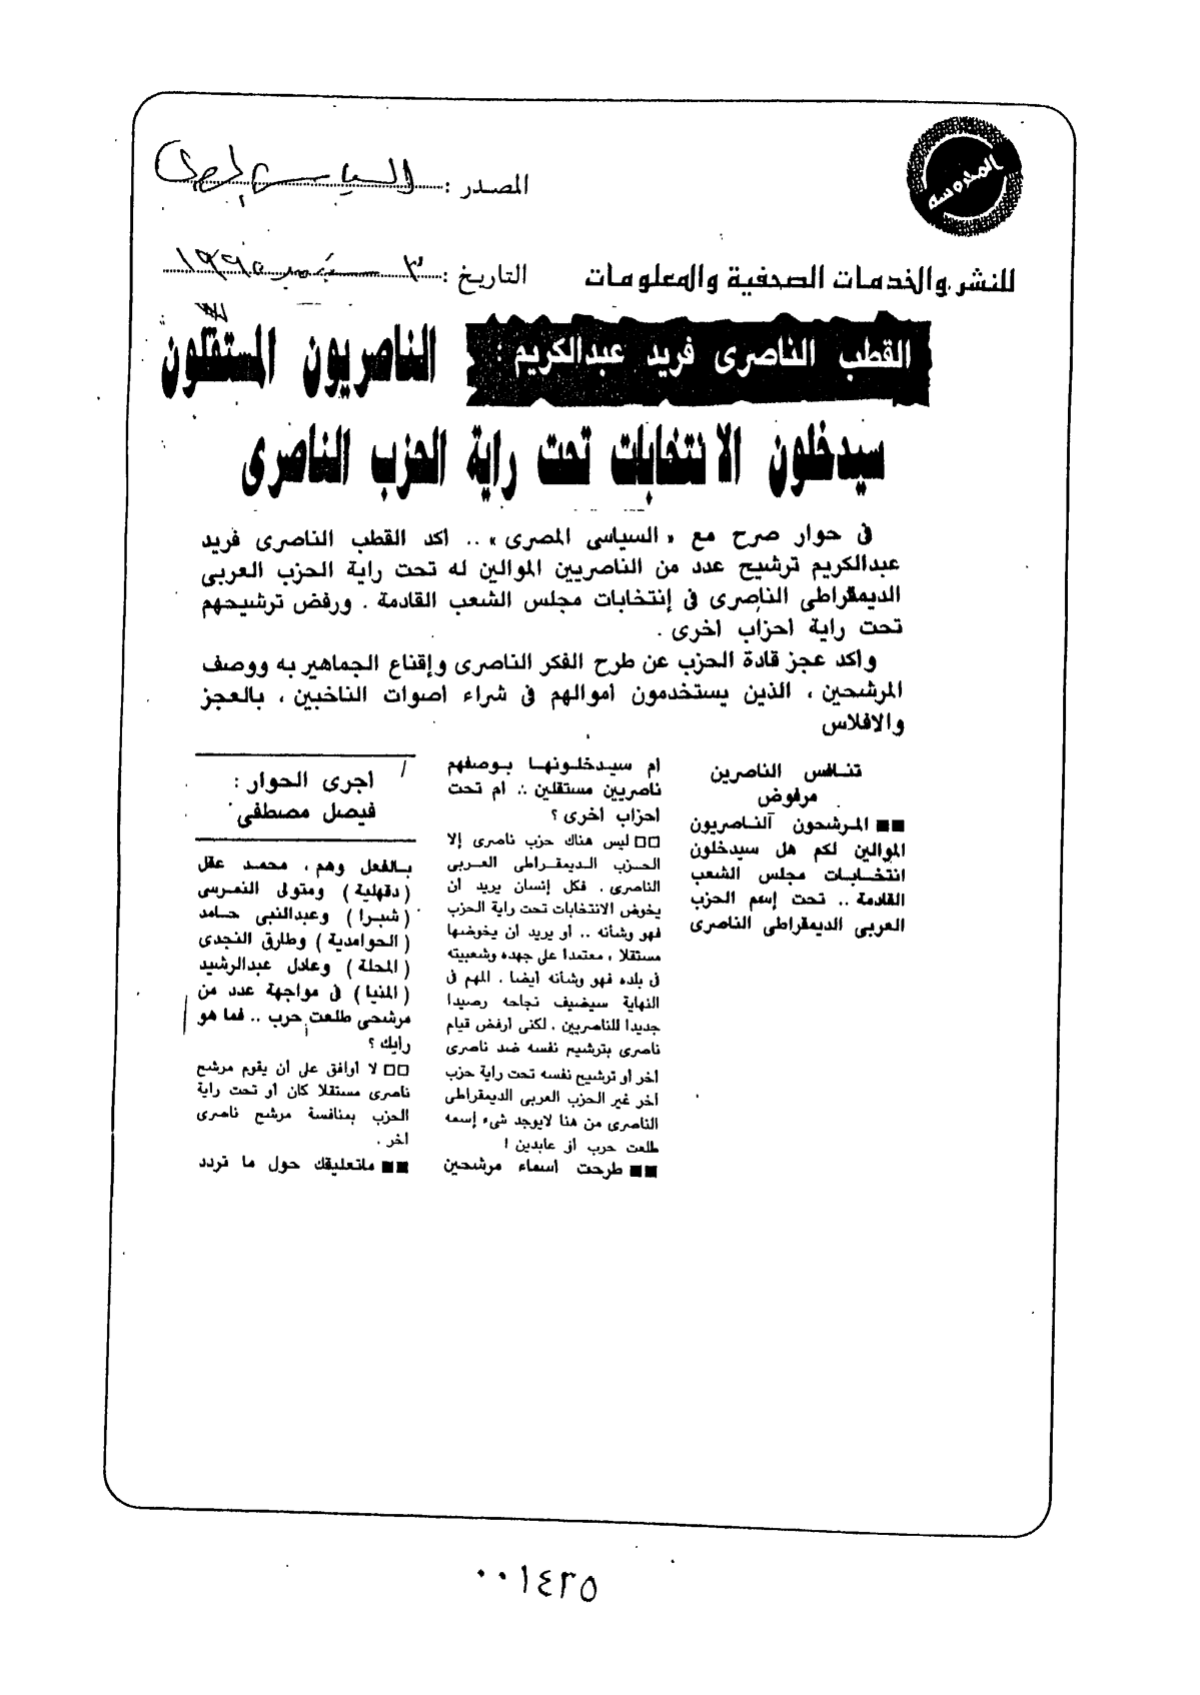 المحروسة
المصدر : السياسى المصرى
للنشر والخدمات الصحفية والمعلومات
التاريخ : ٣ سبتمبر ١٩٩٥
القطب الناصرى فريد عبدالكريم :
الناصريون المستقلون
سيدخلون الانتخابات تحت راية الحزب الناصرى
فى حوار صرح مع « السياسى المصرى » .. اكد القطب الناصرى فريد
عبدالكريم ترشيح عدد من الناصريين الموالين له تحت راية الحزب العربى
الديمقراطى الناصرى فى إنتخابات مجلس الشعب القادمة . ورفض ترشيحهم
تحت راية احزاب اخرى .
واكد عجز قادة الحزب عن طرح الفكر الناصرى وإقناع الجماهير به ووصف
المرشحين ، الذين يستخدمون اموالهم فى شراء اصوات الناخبين ، بالعجز
والافلاس
تنافس الناصرين
مرفوض
■■ المرشحون الناصريون
الموالين لكم هل سيدخلون
انتخابات مجلس الشعب
القادمة .. تحت إسم الحزب
العربى الديمقراطى الناصرى
ام سيدخلونها بوصفهم
ناصريين مستقلين .. ام تحت
احزاب اخرى ؟
□□ ليس هناك حزب ناصرى إلا
الحزب الديمقراطى العربى
الناصرى . فكل إنسان يريد أن
يخوض الانتخابات تحت راية الحزب
فهو وشأنه .. أو يريد أن يخوضها
مستقلا ، معتمدا على جهده وشعبيته
فى بلده فهو وشأنه أيضا . المهم فى
النهاية سيضيف نجاحه رصيدا
جديدا للناصريين . لكنى أرفض قيام
ناصرى بترشيح نفسه ضد ناصرى
أخر أو ترشيح نفسه تحت راية حزب
أخر غير الحزب العربى الديمقراطى
الناصرى من هنا لايوجد شىء إسمه
طلعت حرب أو عابدين !
■■ طرحت اسماء مرشحين
اجرى الحوار :
فيصل مصطفى
بالفعل وهم ، محمد عقل
( دقهلية ) ومتولى النمرسى
( شبرا ) وعبدالنبى حامد
( الحوامدية ) وطارق النجدى
( المحلة ) وعادل عبدالرشيد
( المنيا ) فى مواجهة عدد من
مرشحى طلعت حرب .. فما هو
رايك ؟
□□ لا أوافق على أن يقوم مرشح
ناصرى مستقلا كان أو تحت راية
الحزب بمنافسة مرشح ناصرى
أخر .
■■ ماتعليقك حول ما تردد
٠٠١٤٢٥